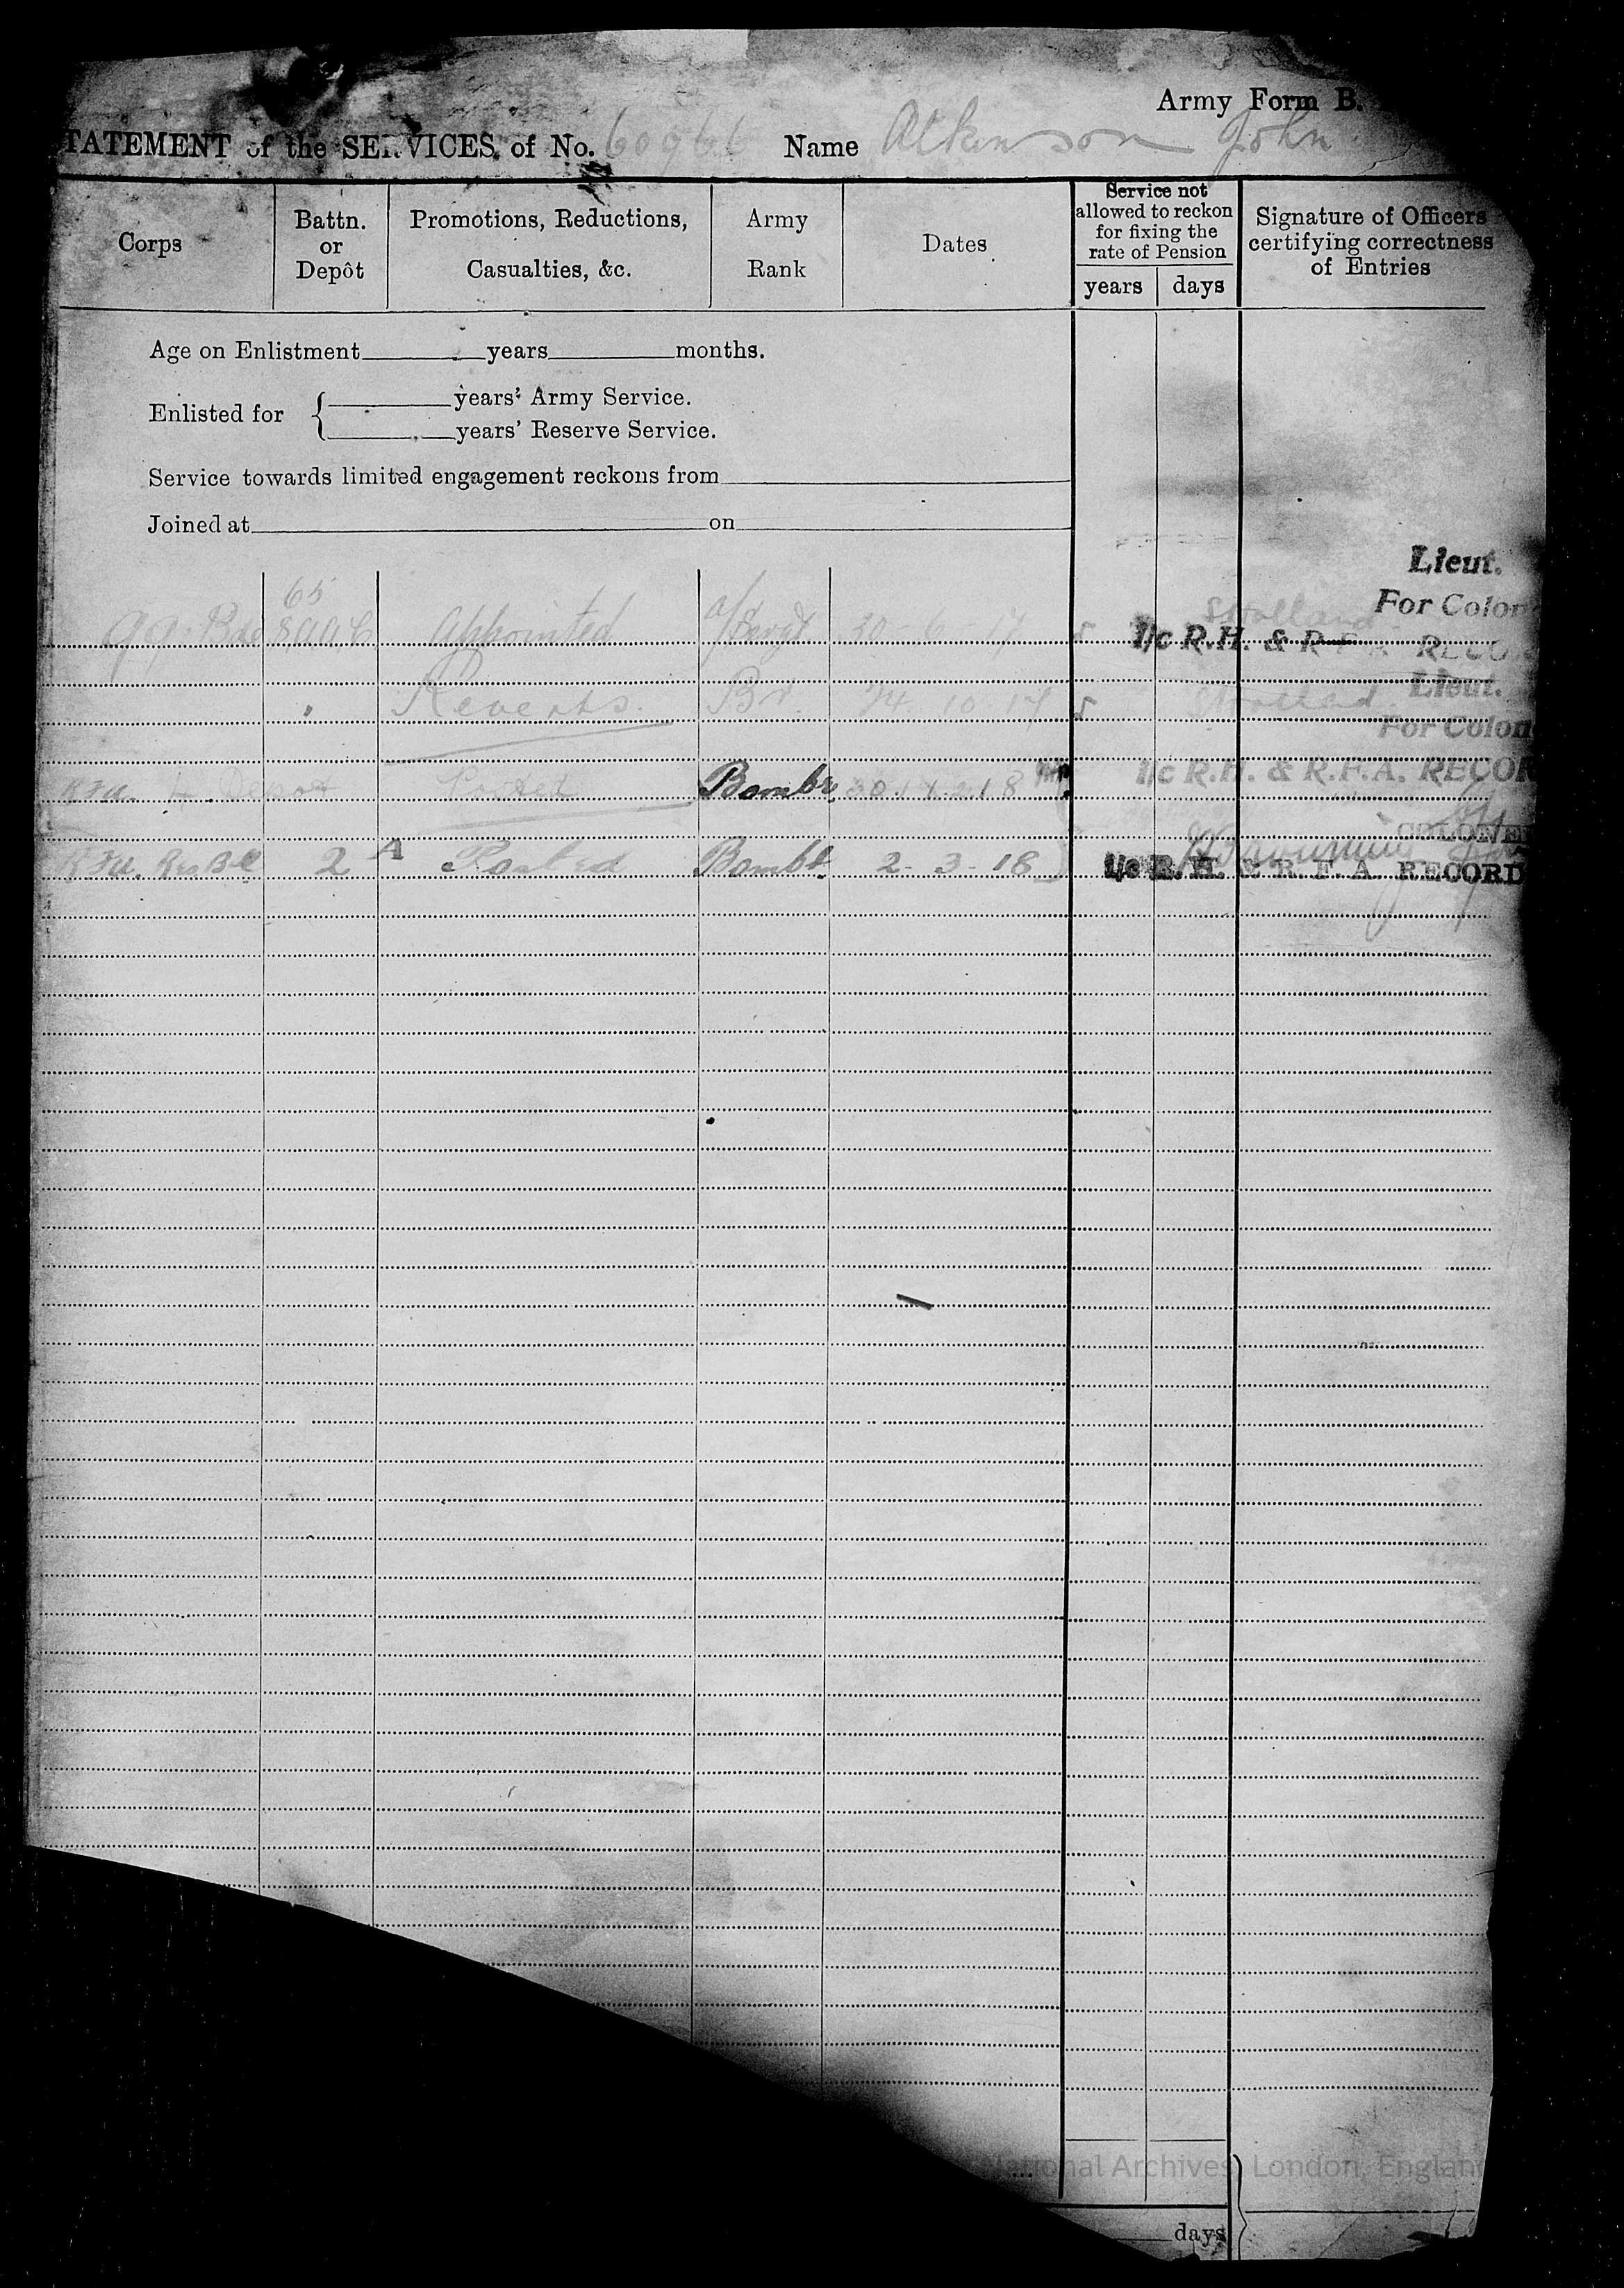 Army Form B.
TATEMENT of the SERVICES of No. 60966 Name Atkinson John
Corps
Battn. or Depôt
Promotions, Reductions, Casualties, &c.
Army Rank
Dates
Service not allowed to reckon for fixing the rate of Pension
years days
Signature of Officers certifying correctness of Entries
Age on Enlistment years months.
Enlisted for { years' Army Service.
years' Reserve Service.
Service towards limited engagement reckons from
Joined at on
Lieut.
65 For Colon
Bde Appointed a/Sergt 30 6 17 I/c R.H. & R.F.A. RECO
Lieut.
Reverts. Br. 10 17
For Colon
R.F.A. Depot Posted Bombr. 18 I/c R.H. & R.F.A. RECOR
COLONE
R.F.A. Res Bde 2 A Posted Bombr. 2-3-18 I/c R.H. & R.F.A. RECORD
National Archives, London, England
days